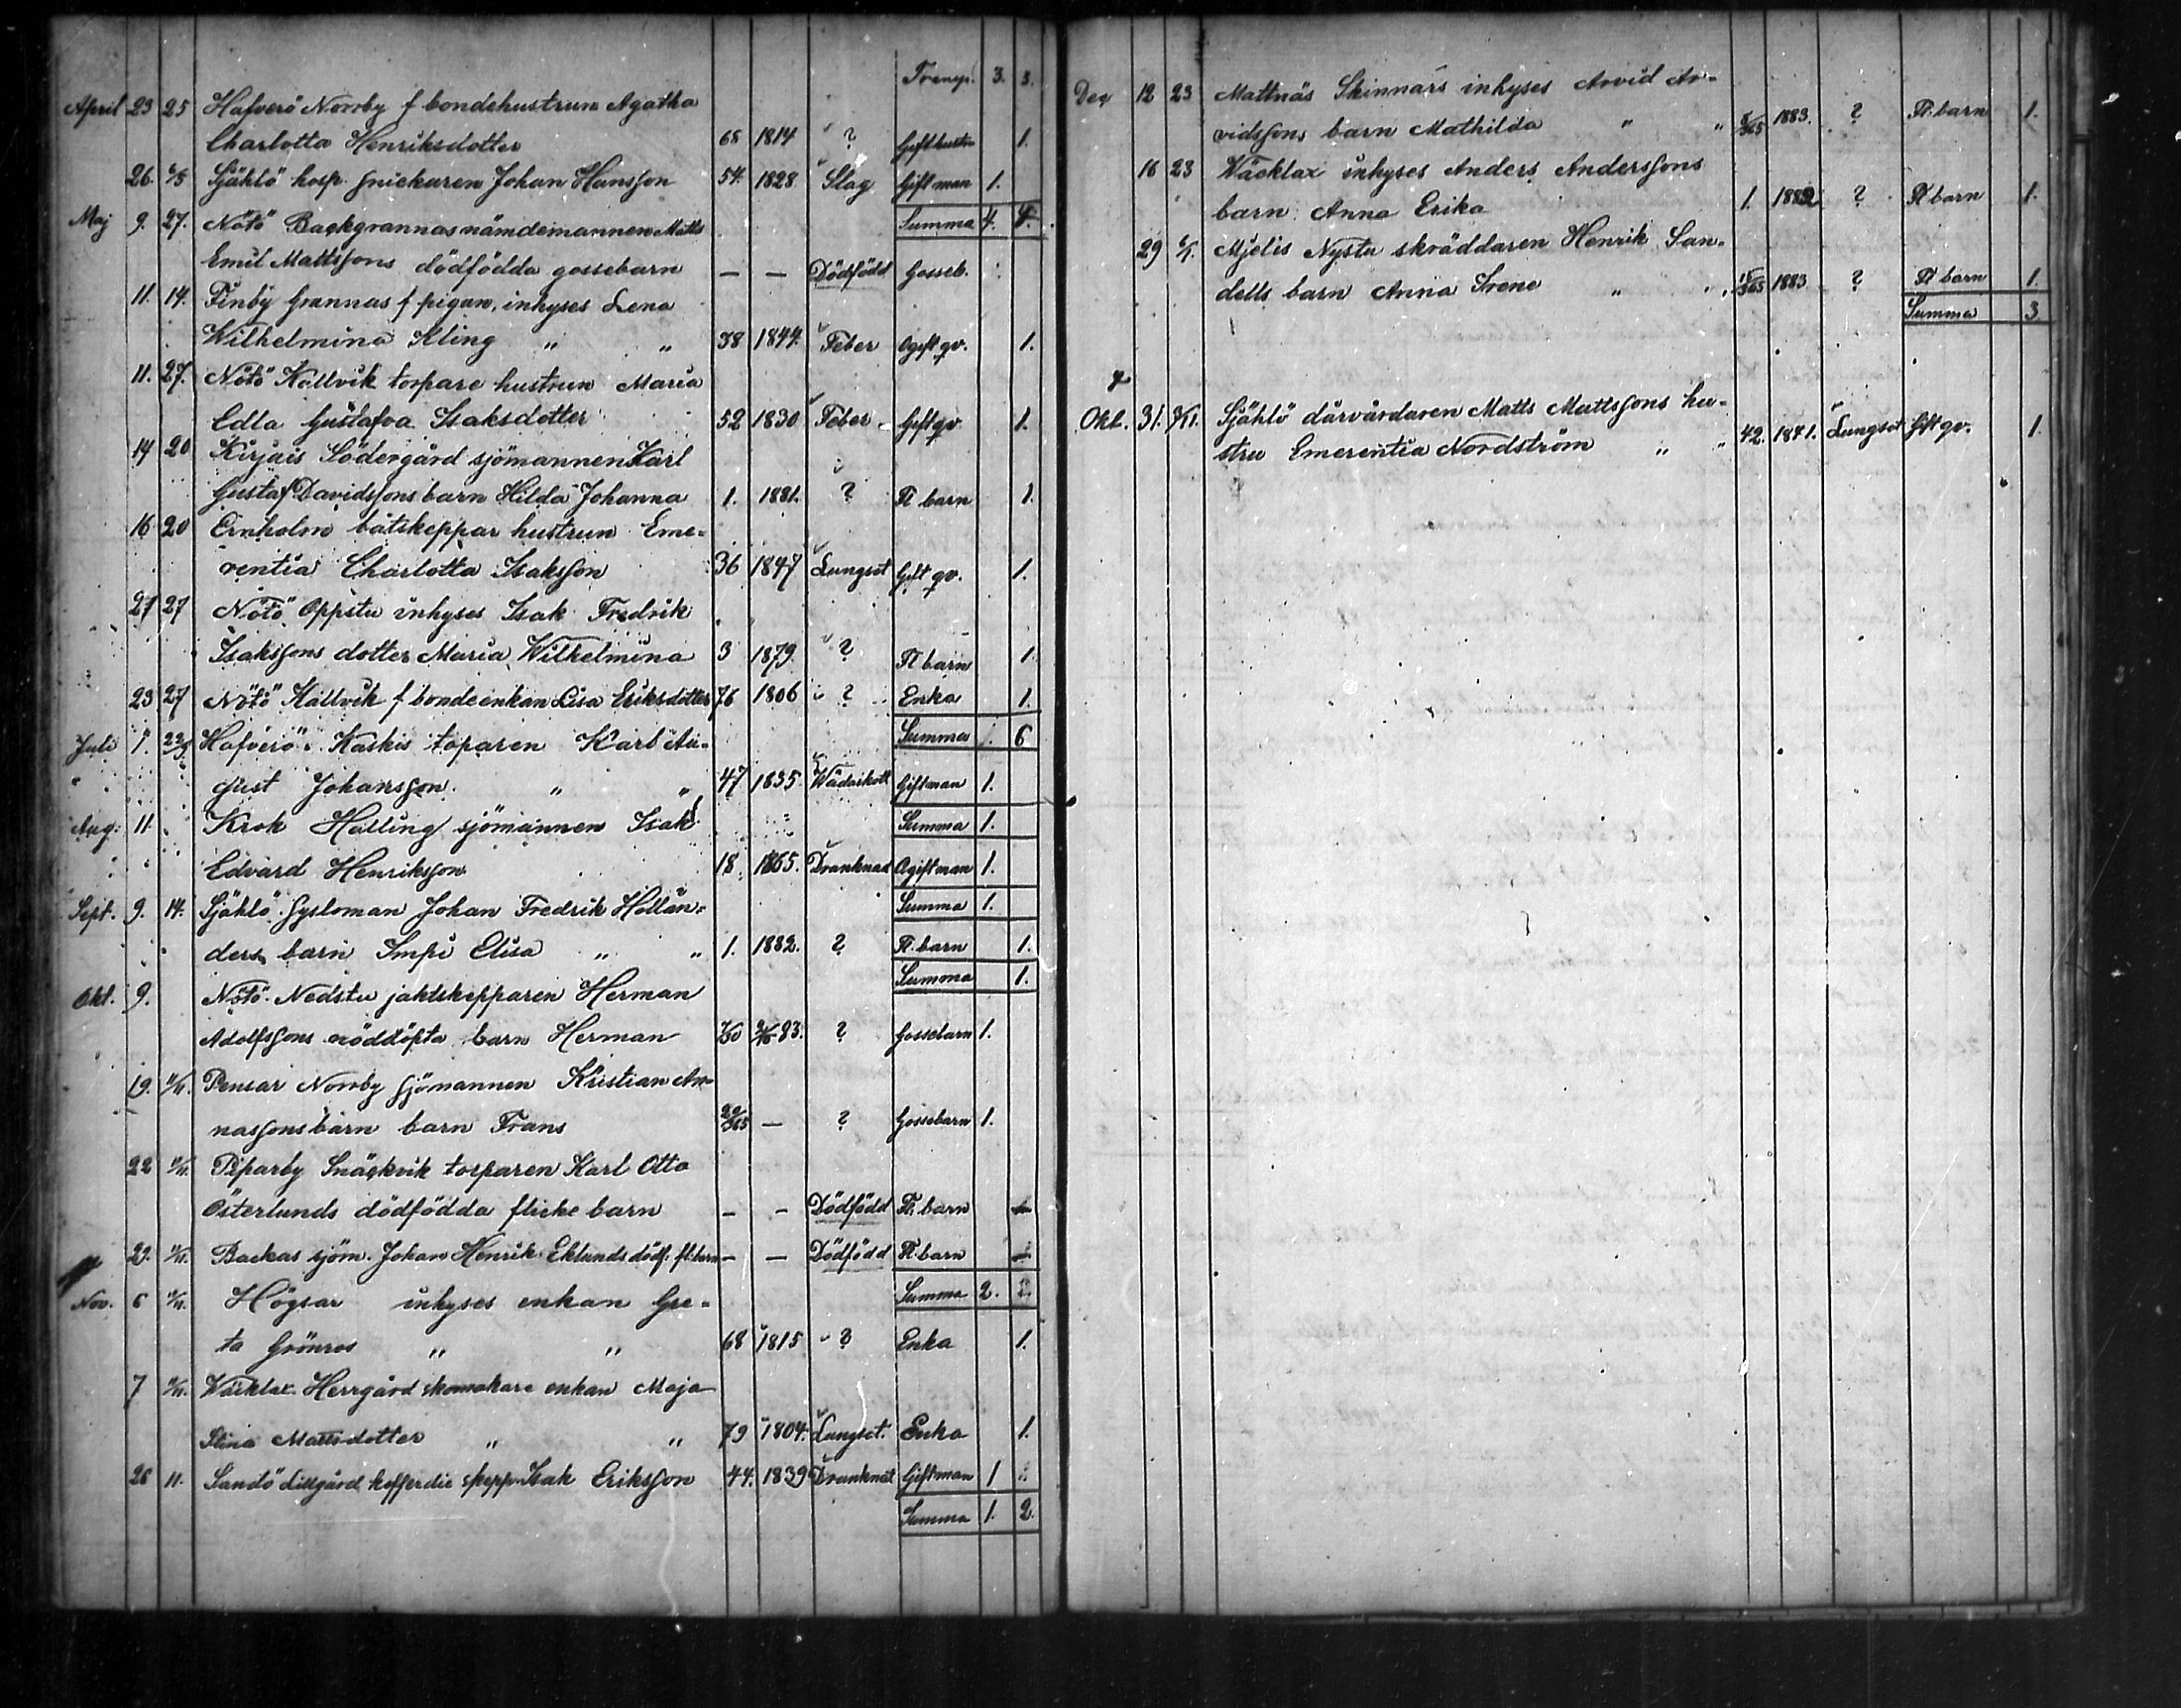 Transp. 3. 3.
April 23 25 Hafverö Norrby f bondehustrun Agatha
Charlotta Henriksdotter 68 1814 ? Gift hustru 1.
26. 6/5 Själö hosp. snickaren Johan Hansson 54. 1828 Slag Gift man 1.
Maj 9. 27. Nötö Backgrannas nämdemannen Matts Summa 4. 4.
Emil Mattssons dödfödda gossebarn — — Dödfödd Gosseb.
11. 14. Finby Grannas f pigan, inhyses Lena
Wilhelmina Kling " " 38 1844. Feber Ogift qv. 1.
11. 27. Nötö Källvik torpare hustrun Maria
Edla Gustafva Isaksdotter 52 1830 Feber Gift qv 1.
14 20 Kirjais Södergård sjömannen Karl
Gustaf Davidssons barn Hilda Johanna 1. 1881. ? Fl barn 1.
16 20 Ernholm båtskeppar hustrun Eme-
rentia Charlotta Isaksson 36 1847 Lungsot Gift qv. 1.
21 27 Nötö Oppstu inhyses Isak Fredrik
Isakssons dotter Maria Wilhelmina 3 1879. ? Fl barn 1.
23 27 Nötö Källvik f bondeenkan Lisa Eriksdotter 76 1806 ? Enka 1.
Juli 1. 22/9 Hafverö Kaskis toparen Karl Au- Summa 1. 6
gust Johansson. " " 47 1835. Wådaskott Gift man 1.
Aug. 11. Krok Hälling sjömannen Isak Summa 1.
Edvard Henriksson 18 1865. Drunknad Ogift man 1.
Sept. 9. 14. Själö Sysloman Johan Fredrik Hollän- Summa 1.
ders barn Impi Elisa " " 1. 1882. ? Fl. barn 1.
Okt. 9. Nötö Nedstu jaktskepparen Herman Summa 1.
Adolfssons nöddöpta barn Herman 83. ? Gossebarn 1.
19. 11/11. Pensar Norrby Sjömannen Kristian An-
nassons barn barn Frans 20/365 — ? Gossebarn 1.
22 11/11. Piparby Snäckvik torparen Karl Otto
Österlunds dödfödda flicke barn — — Dödfödd Fl. barn
22. 11/11. Backas sjöm. Johan Henrik Eklunds dödf. fl. barn — — Dödfödd Fl. barn
Nov. 6 11/11. Högsar inhyses enkan Gre- Summa 2.
ta Grönros " " 68 1815 ? Enka 1.
7 11/11. Wäcklax Herrgård skomakare enkan Maja
Stina Mattsdotter " " 79 1804. Lungsot. Enka 1.
26 11. Sandö Lillgård kofferdie skepp. Isak Eriksson 44. 1839 Drunknat Gift man 1
Summa 1. 2.
Dec 12 23 Mattnäs Skinnars inhyses Arvid Ar-
vidssons barn Mathilda " " 8/365 1883. ? Fl. barn 1.
16 23 Wäcklax inhyses Anders Anderssons
barn Anna Erika 1. 1882 ? Fl barn 1.
29 6/1. Mjelis Nystu skräddaren Henrik San-
dells barn Anna Irene " " 15/365 1883 ? Fl barn 1.
Summa 3
Okt. 31. 11/11. Själö dårvårdaren Matts Mattssons hu-
stru Emerentia Nordström " " 42. 1841. Lungsot Gift qv. 1.